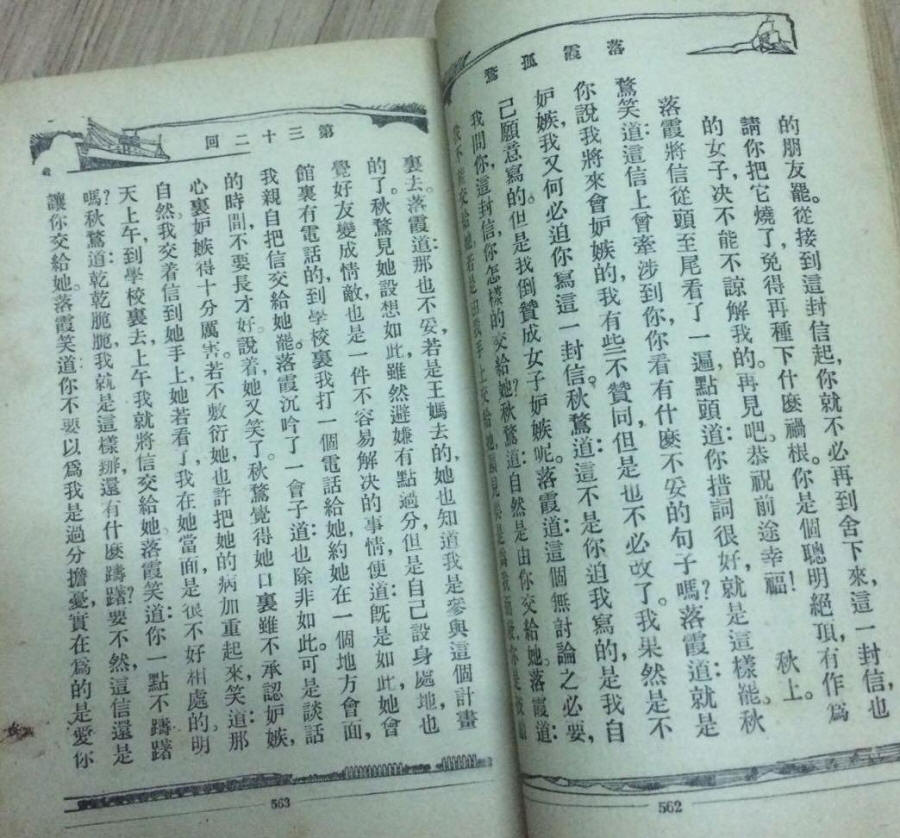 落霞孤鶩
的朋友罷。從接到這封信起,你就不必再到舍下來,這一封信,也
請你把它燒了,免得再種下什麽禍根。你是個聰明絕頂,有作爲
的女子,决不能不諒解我的。再見吧。恭祝前途幸福! 秋上。
落霞將信從頭至尾看了一遍,點頭道:你措詞很好,就是這樣罷。秋
鶩笑道:這信上曾牽涉到你,你看有什麽不妥的句子嗎?落霞道:就是
你說我將來會妒嫉的,我有些不贊同,但是也不必改了。我果然是不
妒嫉,我又何必迫你寫這一封信。秋鶩道:這不是你迫我寫的,是我自
己願意寫的。但是我倒贊成女子妒嫉呢。落霞道:這個無討論之必要,
我問你,這封信,你怎樣的交給她?秋鶩道:自然是由你交給她。落霞道:
交給她,若是由我手上交給她
562
第三十二回
裏去。落霞道:那也不妥,若是王媽去的,她也知道我是參與這個計畫
的了。秋鶩見她設想如此,雖然避嫌有點過分,但是自己設身處地,也
覺好友變成情敵,也是一件不容易解決的事情,便道:旣是如此,她會
館裏有電話的,到學校裏,我打一個電話給她,約她在一個地方會面,
我親自把信交給她罷。落霞沉吟了一會子道:也除非如此,可是談話
的時間,不要長才好。說着,她又笑了。秋鶩覺得她口裏雖不承認妒嫉,
心裏妒嫉得十分厲害。若不敷衍她,也許把她的病加重起來,笑道:那
自然,我交着信到她手上,她若看了,我在她當面,是很不好相處的。明
天上午,到學校裏去,上午我就將信交給她。落霞笑道:你一點不躊躇
嗎?秋鶩道:乾乾脆脆,我就是這樣辦,還有什麽躊躇?要不然,這信還是
讓你交給她。落霞笑道:你不要以爲我是過分擔憂,實在爲的是愛你
563